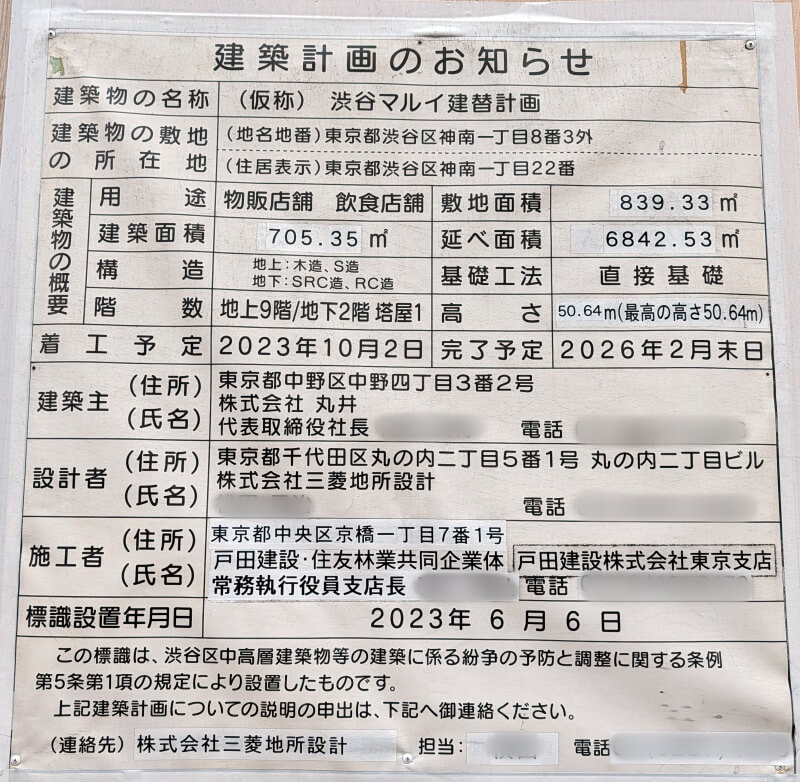 建築計画のお知らせ
建築物の名称 (仮称) 渋谷マルイ建替計画
建築物の敷地の所在地 (地名地番)東京都渋谷区神南一丁目8番3外
(住居表示)東京都渋谷区神南一丁目22番
建築物の概要
用途 物販店舗 飲食店舗 敷地面積 839.33㎡
建築面積 705.35㎡ 延べ面積 6842.53㎡
構造 地上:木造、S造
地下:SRC造、RC造 基礎工法 直接基礎
階数 地上9階/地下2階 塔屋1 高さ 50.64m(最高の高さ50.64m)
着工予定 2023年10月2日 完了予定 2026年2月末日
建築主 (住所) 東京都中野区中野四丁目3番2号
(氏名) 株式会社 丸井
代表取締役社長 電話
設計者 (住所) 東京都千代田区丸の内二丁目5番1号 丸の内二丁目ビル
(氏名) 株式会社三菱地所設計
電話
施工者 (住所) 東京都中央区京橋一丁目7番1号
(氏名) 戸田建設・住友林業共同企業体 戸田建設株式会社東京支店
常務執行役員支店長 電話
標識設置年月日 2023年 6月 6日
この標識は、渋谷区中高層建築物等の建築に係る紛争の予防と調整に関する条例
第5条第1項の規定により設置したものです。
上記建築計画についての説明の申出は、下記へ御連絡ください。
(連絡先) 株式会社三菱地所設計 担当: 電話